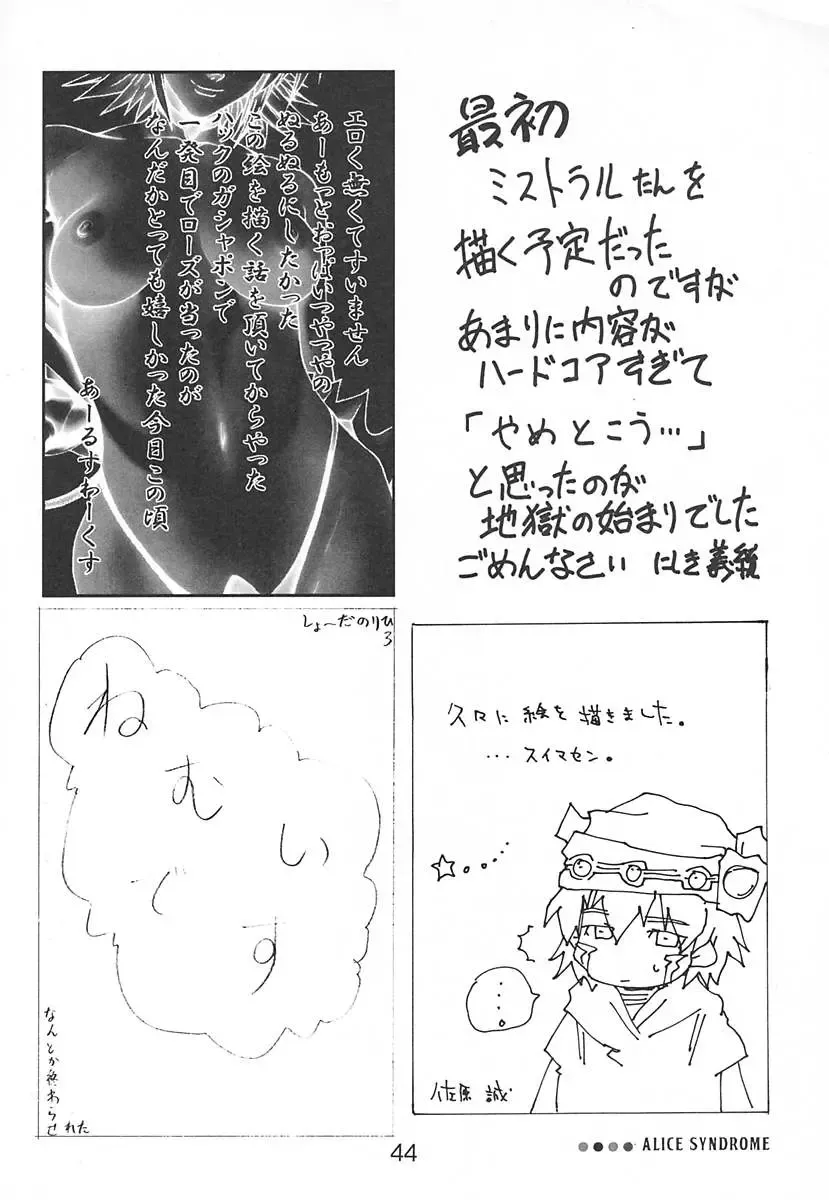 最初
ミストラルたんを
描く予定だった
のですが
あまりに内容が
ハードコアすぎて
「やめとこう…」
と思ったのが
地獄の始まりでした
ごめんなさい にしき義統
エロく無くてすいません
あーもっとおっぱいつやつやの
ぬるぬるにしたかった
この絵を描く話を頂いてからやった
ハックのガシャポンで
一発目でローズが当ったのが
なんだかとっても嬉しかった今日この頃
あーるすわーくす
しょ〜だのりひ
ろ
ねむいです
なんとか終わらせ
れた
久々に絵を描きました。
…スイマセン。
☆。。….
…。
佐原 誠
44
ALICE SYNDROME